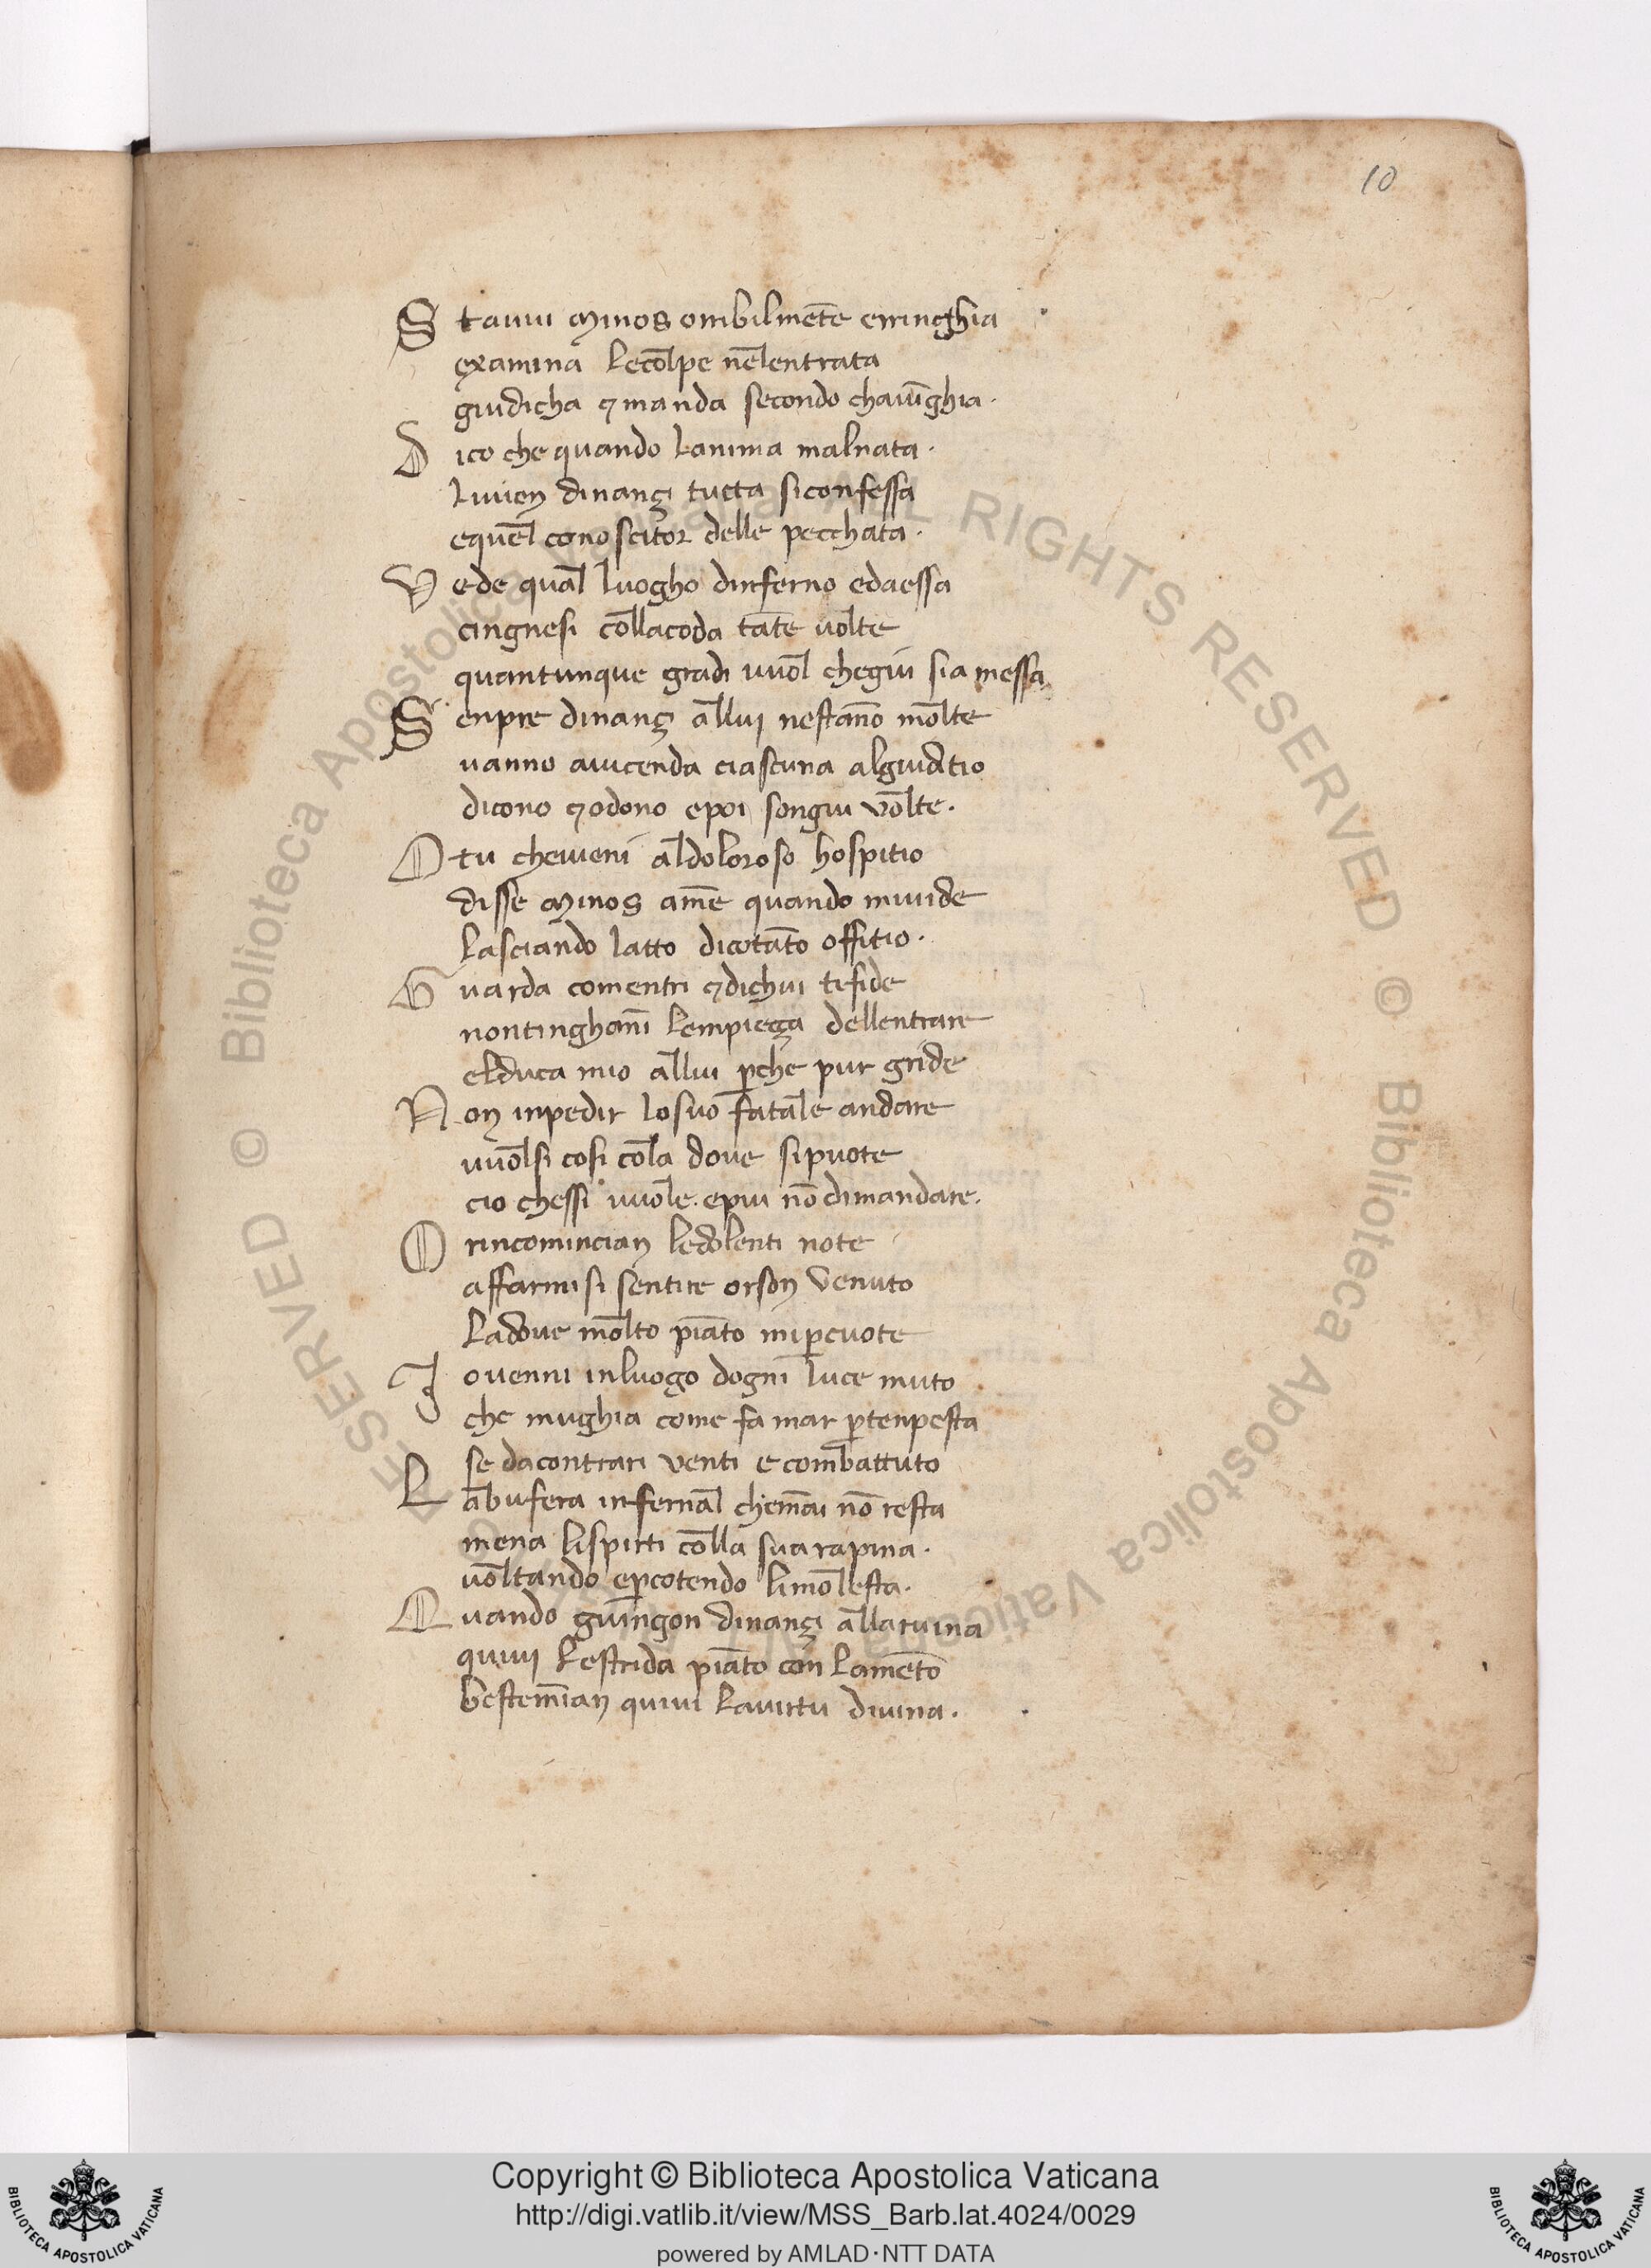 10
Stauui Minos orribilmēte erringhia
examina lecolpe nelentrata
giudicha ⁊ manda secondo chauīghia·
Dico che quando lanima malnata·
liuien dinançi tutta siconfessa
equel conoscitor delle pecchata·
Vede qual luogho dinferno edaessa
cingnesi collacoda tāte uolte
quantunque gradi uuol chegiu sia messa
Senpre dinanç allui nestāno molte
uanno auicenda ciascuna algiuditio
dicono ⁊odono epoi songiu volte·
Otu cheuieni aldoloroso hospitio
disse Minos amē quando miuide
lasciando latto dicotāto offitio·
Guarda comentri ⁊dichui tifide
nontinghanī lempieça dellentrare
elduca mio allui ꝑche pur gride
Non inpedir losuo fatale andare
uuolsi cosi cola doue sipuote
cio chessi uuole· epiu nō dimandare·
Orincomincian ledolenti note
affarmisi sentire orson venuto
ladoue molto piāto miꝑcuote
Iouenni inluogo dogni luce muto
che mughia come fa mar ꝑtenpesta
se dacontrari venti e combattuto
Labufera infernal chemāi nō resta
mena lispirti colla sua rapina·
uoltando eꝑcotendo limolesta·
Quando guingon dinançi allaruina
quiui lestrida piāto con lamēto
bestemīan quiui lauirtu diuina·
© Biblioteca Apostolica Vaticana ALL RIGHTS RESERVED
© Biblioteca Apostolica Vaticana ALL RIGHTS RESERVED
Copyright © Biblioteca Apostolica Vaticana
http://digi.vatlib.it/view/MSS_Barb.lat.4024/0029
powered by AMLAD·NTT DATA
BIBLIOTECA APOSTOLICA VATICANA
BIBLIOTECA APOSTOLICA VATICANA